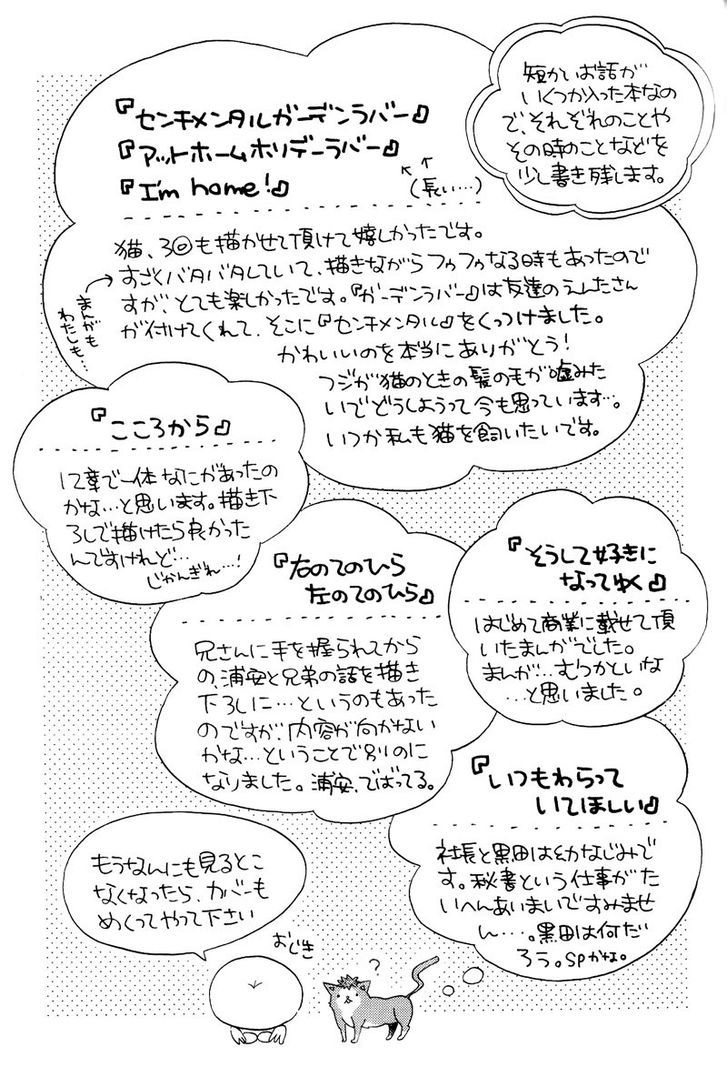 短かいお話が
いくつか入った本なの
で、それぞれのことや
その時のことなどを
少し書き残します。
『センチメンタルガーデンラバー』
『アットホームホリデーラバー』
『I'm home!』
(長い…)
猫、3回も描かせて頂けて嬉しかったです。
すごくバタバタしていて、描きながらフゥフゥなる時もあったので
すが、とても楽しかったです。『ガーデンラバー』は友達のえしたさん
が付けてくれて、そこに『センチメンタル』をくっつけました。
かわいいのを本当にありがとう!
フジが猫のときの髪の毛が歯みた
いでどうしようって今も思っています…。
いつか私も猫を飼いたいです。
まんがも
わたしも…
『こころから』
12章で一体なにがあったの
かな…と思います。描き下
ろしで描けたら良かった
んですけれど…
じかんぎれ…!
『右のてのひら
左のてのひら』
兄さんに手を握られてから
の、浦安と兄弟の話を描き
下ろしに…というのもあった
のですが、内容が向かない
かな…ということで別のに
なりました。浦安、でばってる。
『そうして好きに
なってゆく』
はじめて商業に載せて頂
いたまんがでした。
まんが…むつかといな
…と思いました。
『いつもわらって
いてほしい』
社長と黒田は幼なじみで
す。秘書という仕事がた
いへんあいまいですみませ
ん…。黒田は何だ
ろう。SPかな。
もうなんにも見るとこ
なくなったら、カバーも
めくってやって下さい
おじぎ
?